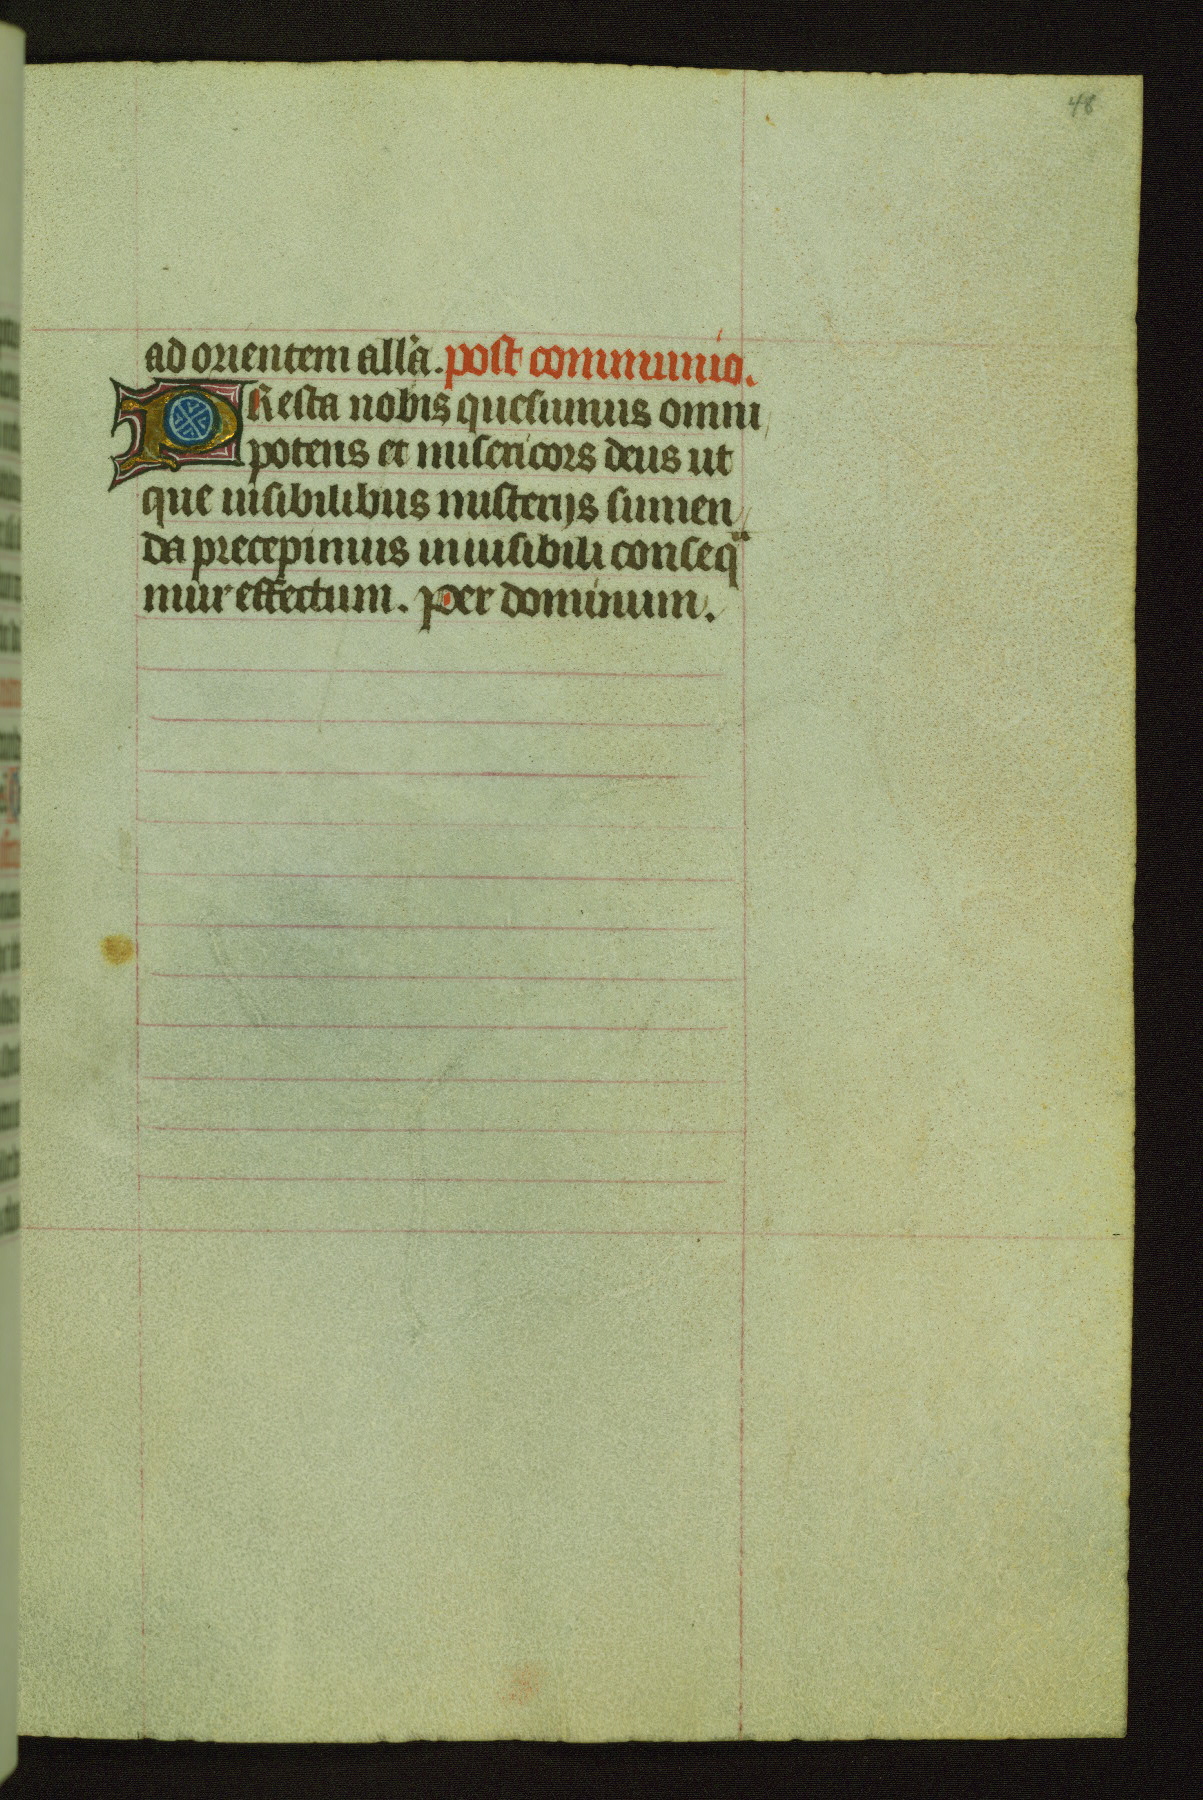 48
ad orientem all'a. post communio.
PResta nobis quesumus omni
potens et misericors deus ut
que uisibilibus misterijs sumen
da precepimus inuisibili conseq
mur effectum. Per dominum.